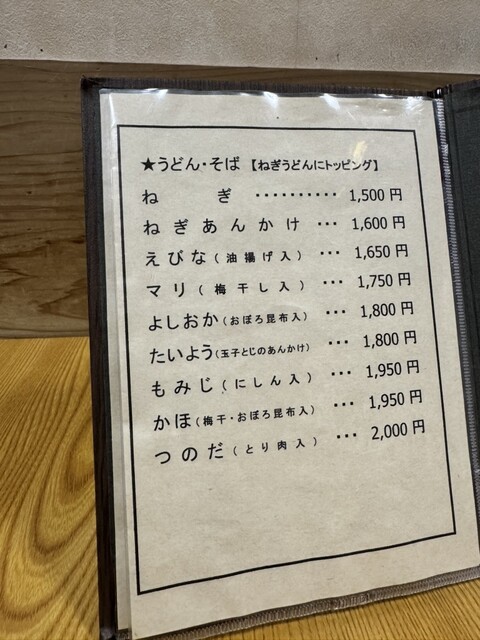 ★うどん・そば 【ねぎうどんにトッピング】
ねぎ ・・・・・・・・・・ 1,500 円
ねぎあんかけ ・・・ 1,600 円
えびな(油揚げ入) ・・・ 1,650 円
マリ(梅干し入) ・・・ 1,750 円
よしおか(おぼろ昆布入) ・・・ 1,800 円
たいよう(玉子とじのあんかけ) ・・・ 1,800 円
もみじ(にしん入) ・・・ 1,950 円
かほ(梅干・おぼろ昆布入) ・・・ 1,950 円
つのだ(とり肉入) ・・・ 2,000 円